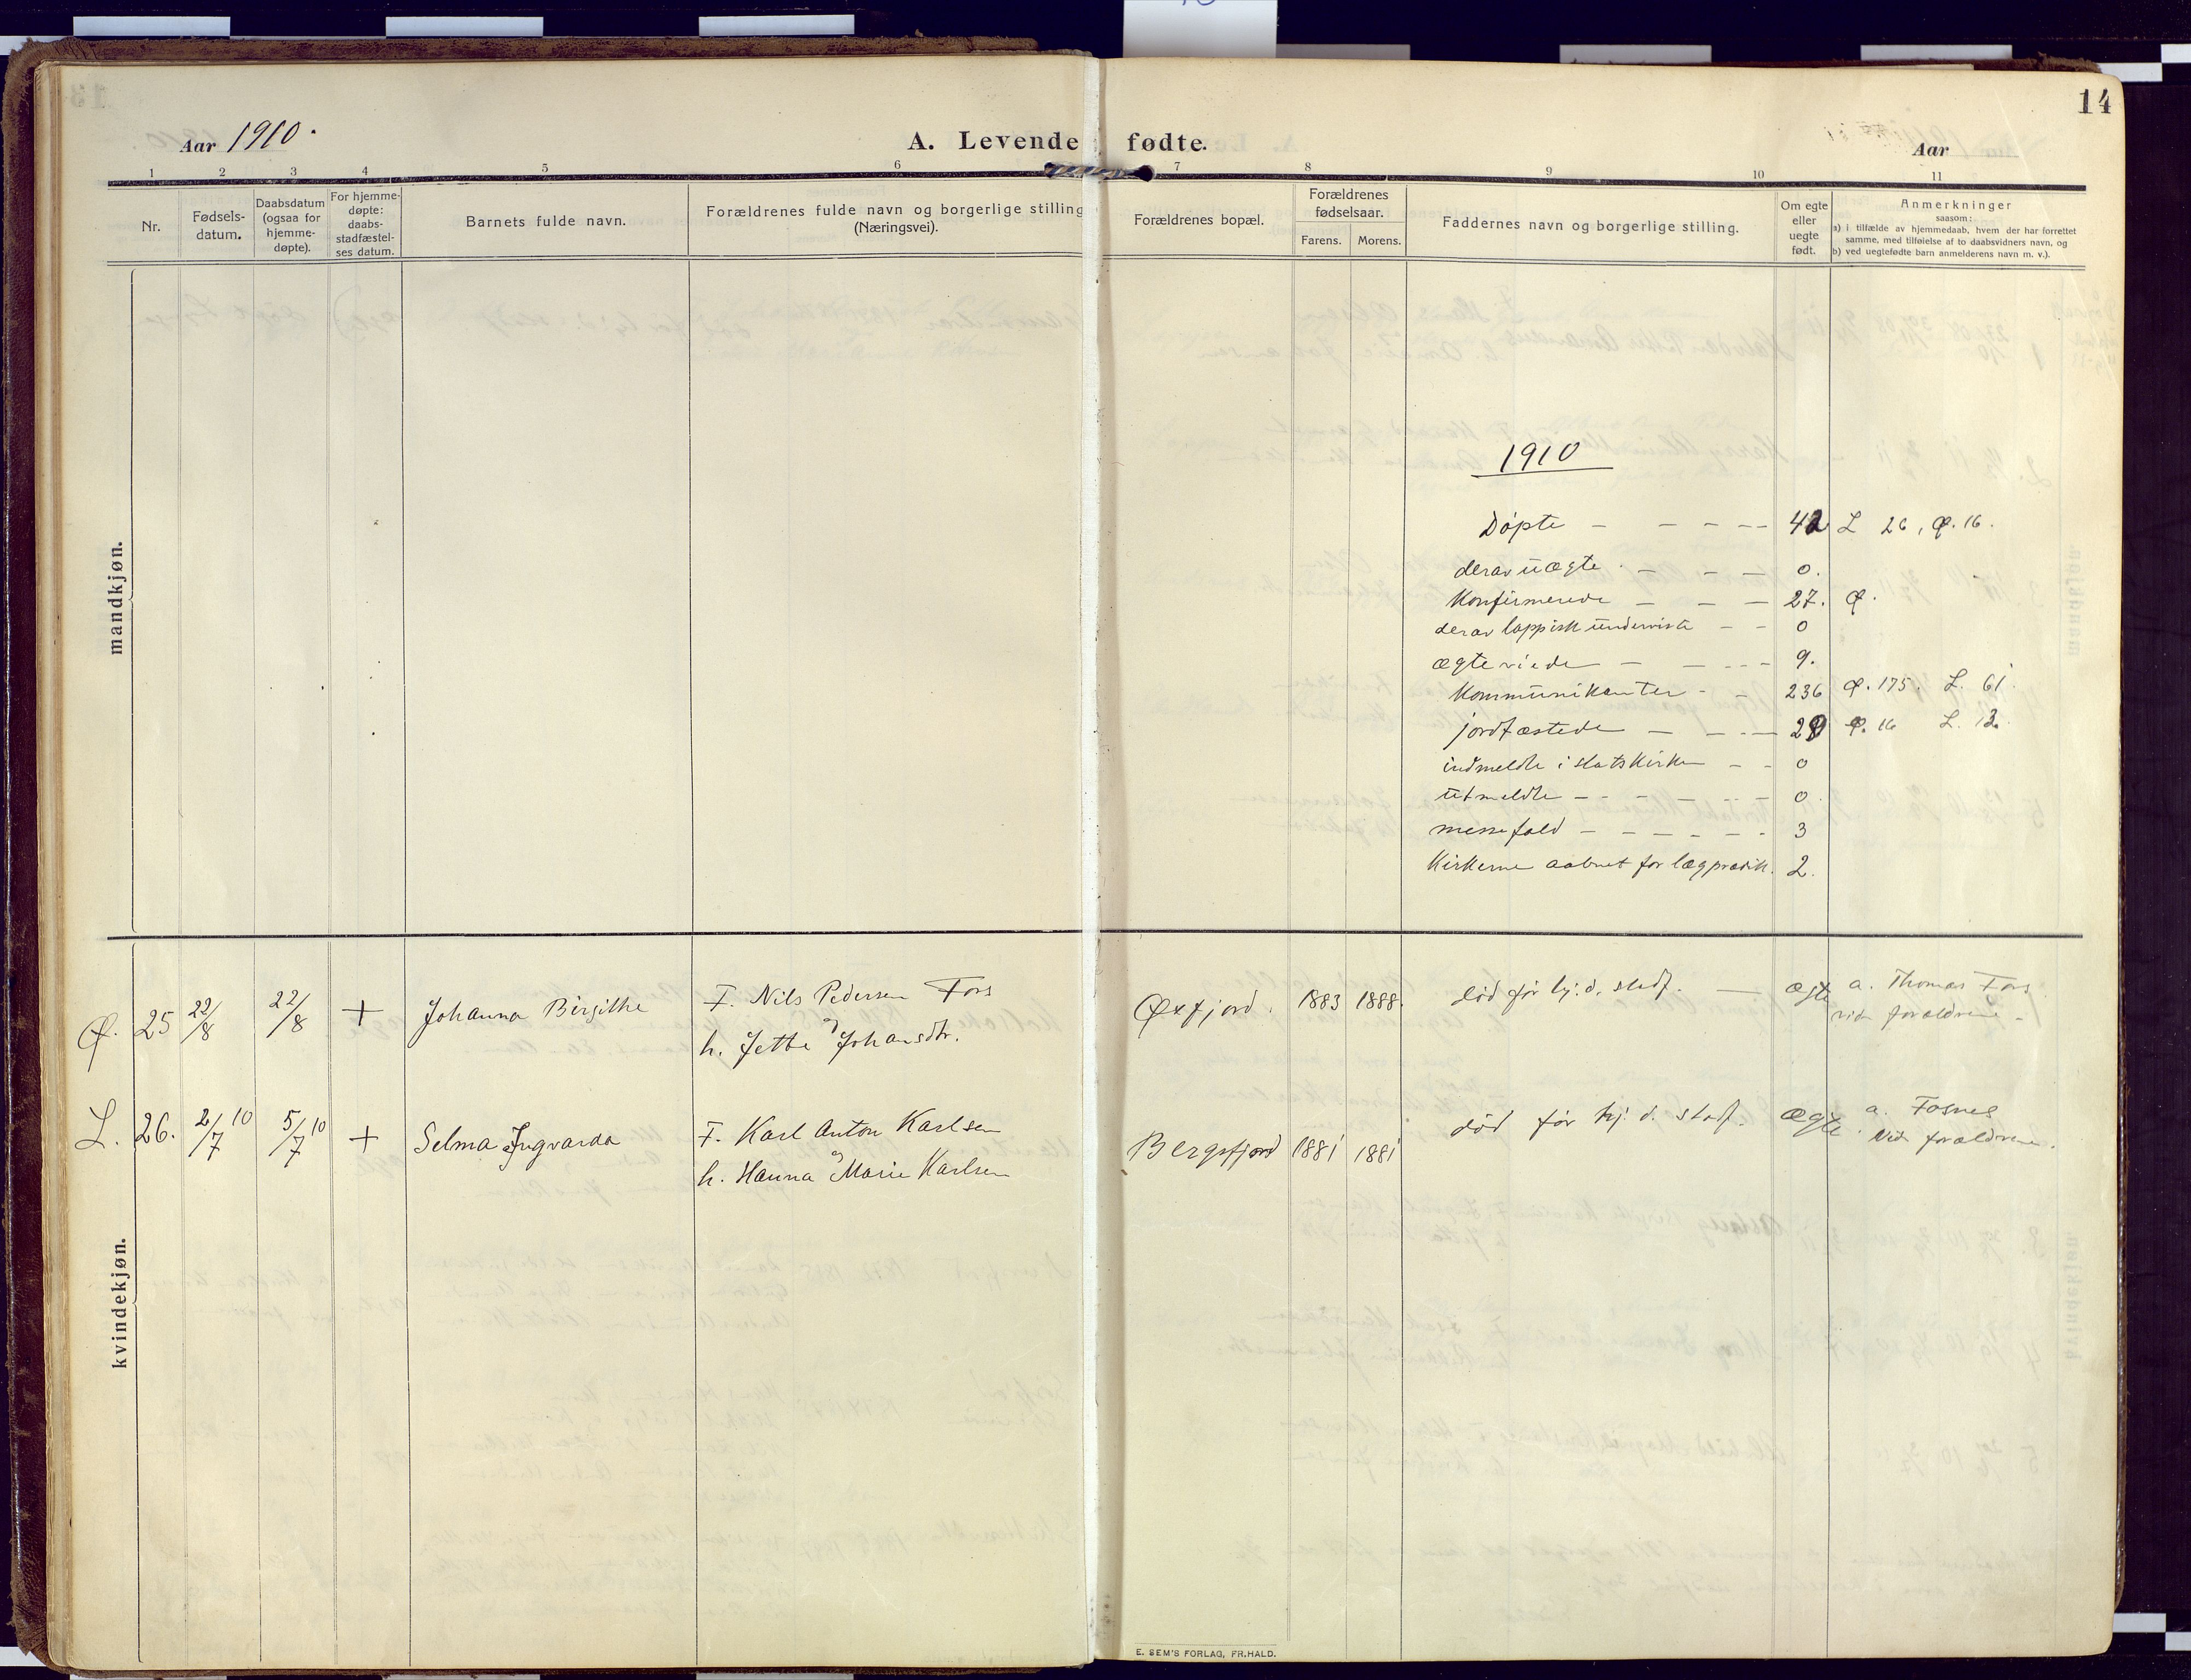 14
Aar 1910.
A. Levende fødte.
Aar
1 2 3 4 5 6 7 8 9 10 11
Nr.
Fødsels-
datum.
Daabsdatum
(ogsaa for
hjemme-
døpte).
For hjemme-
døpte:
daabs-
stadfæstel-
ses datum.
Barnets fulde navn.
Forældrenes fulde navn og borgerlige stilling
(Næringsvei).
Forældrenes bopæl.
Forældrenes
fødselsaar.
Farens. Morens.
Faddernes navn og borgerlige stilling.
Om egte
eller
uegte
født.
Anmerkninger
saasom:
a) i tilfælde av hjemmedaab, hvem der har forrettet
samme, med tilføielse af to daabsvidners navn, og
b) ved uegtefødte barn anmelderens navn m. v.).
mandkjøn.
1910
Døpte - - - - - 42 L 26, Ø. 16.
derav uægte - - - - 0.
Konfirmerede - - - 27. Ø.
derav lappisk underviste - - 0
ægteviede - - - - - 9.
Kommunikanter - - 236 Ø. 175. L. 61.
jordfæstede - - - - 29 Ø. 16 L. 13.
indmeldte i statskirken - - 0
utmeldte - - - - - - 0.
messefald - - - - - - 3
Kirkerne aabnet for lægprædik. 2.
kvindekjøn.
Ø. 25 22/8 22/8 + Johanna Birgithe F. Nils Pedersen Fors Øxfjord. 1883 1888. død før hj. d. stadf. — ægte a. Thomas Fors
h. Jette Johansdtr. vidn forældrene -
L. 26. 2/7 10 5/7 10 + Selma Ingvarda F. Karl Anton Karlsen Bergsfjord 1881 1881 død før hj. d. stadf. ægte. a. Fosnes
og
h. Hanna Marie Karlsen Vidn forældrene.
E. SEM'S FORLAG, FR.HALD.